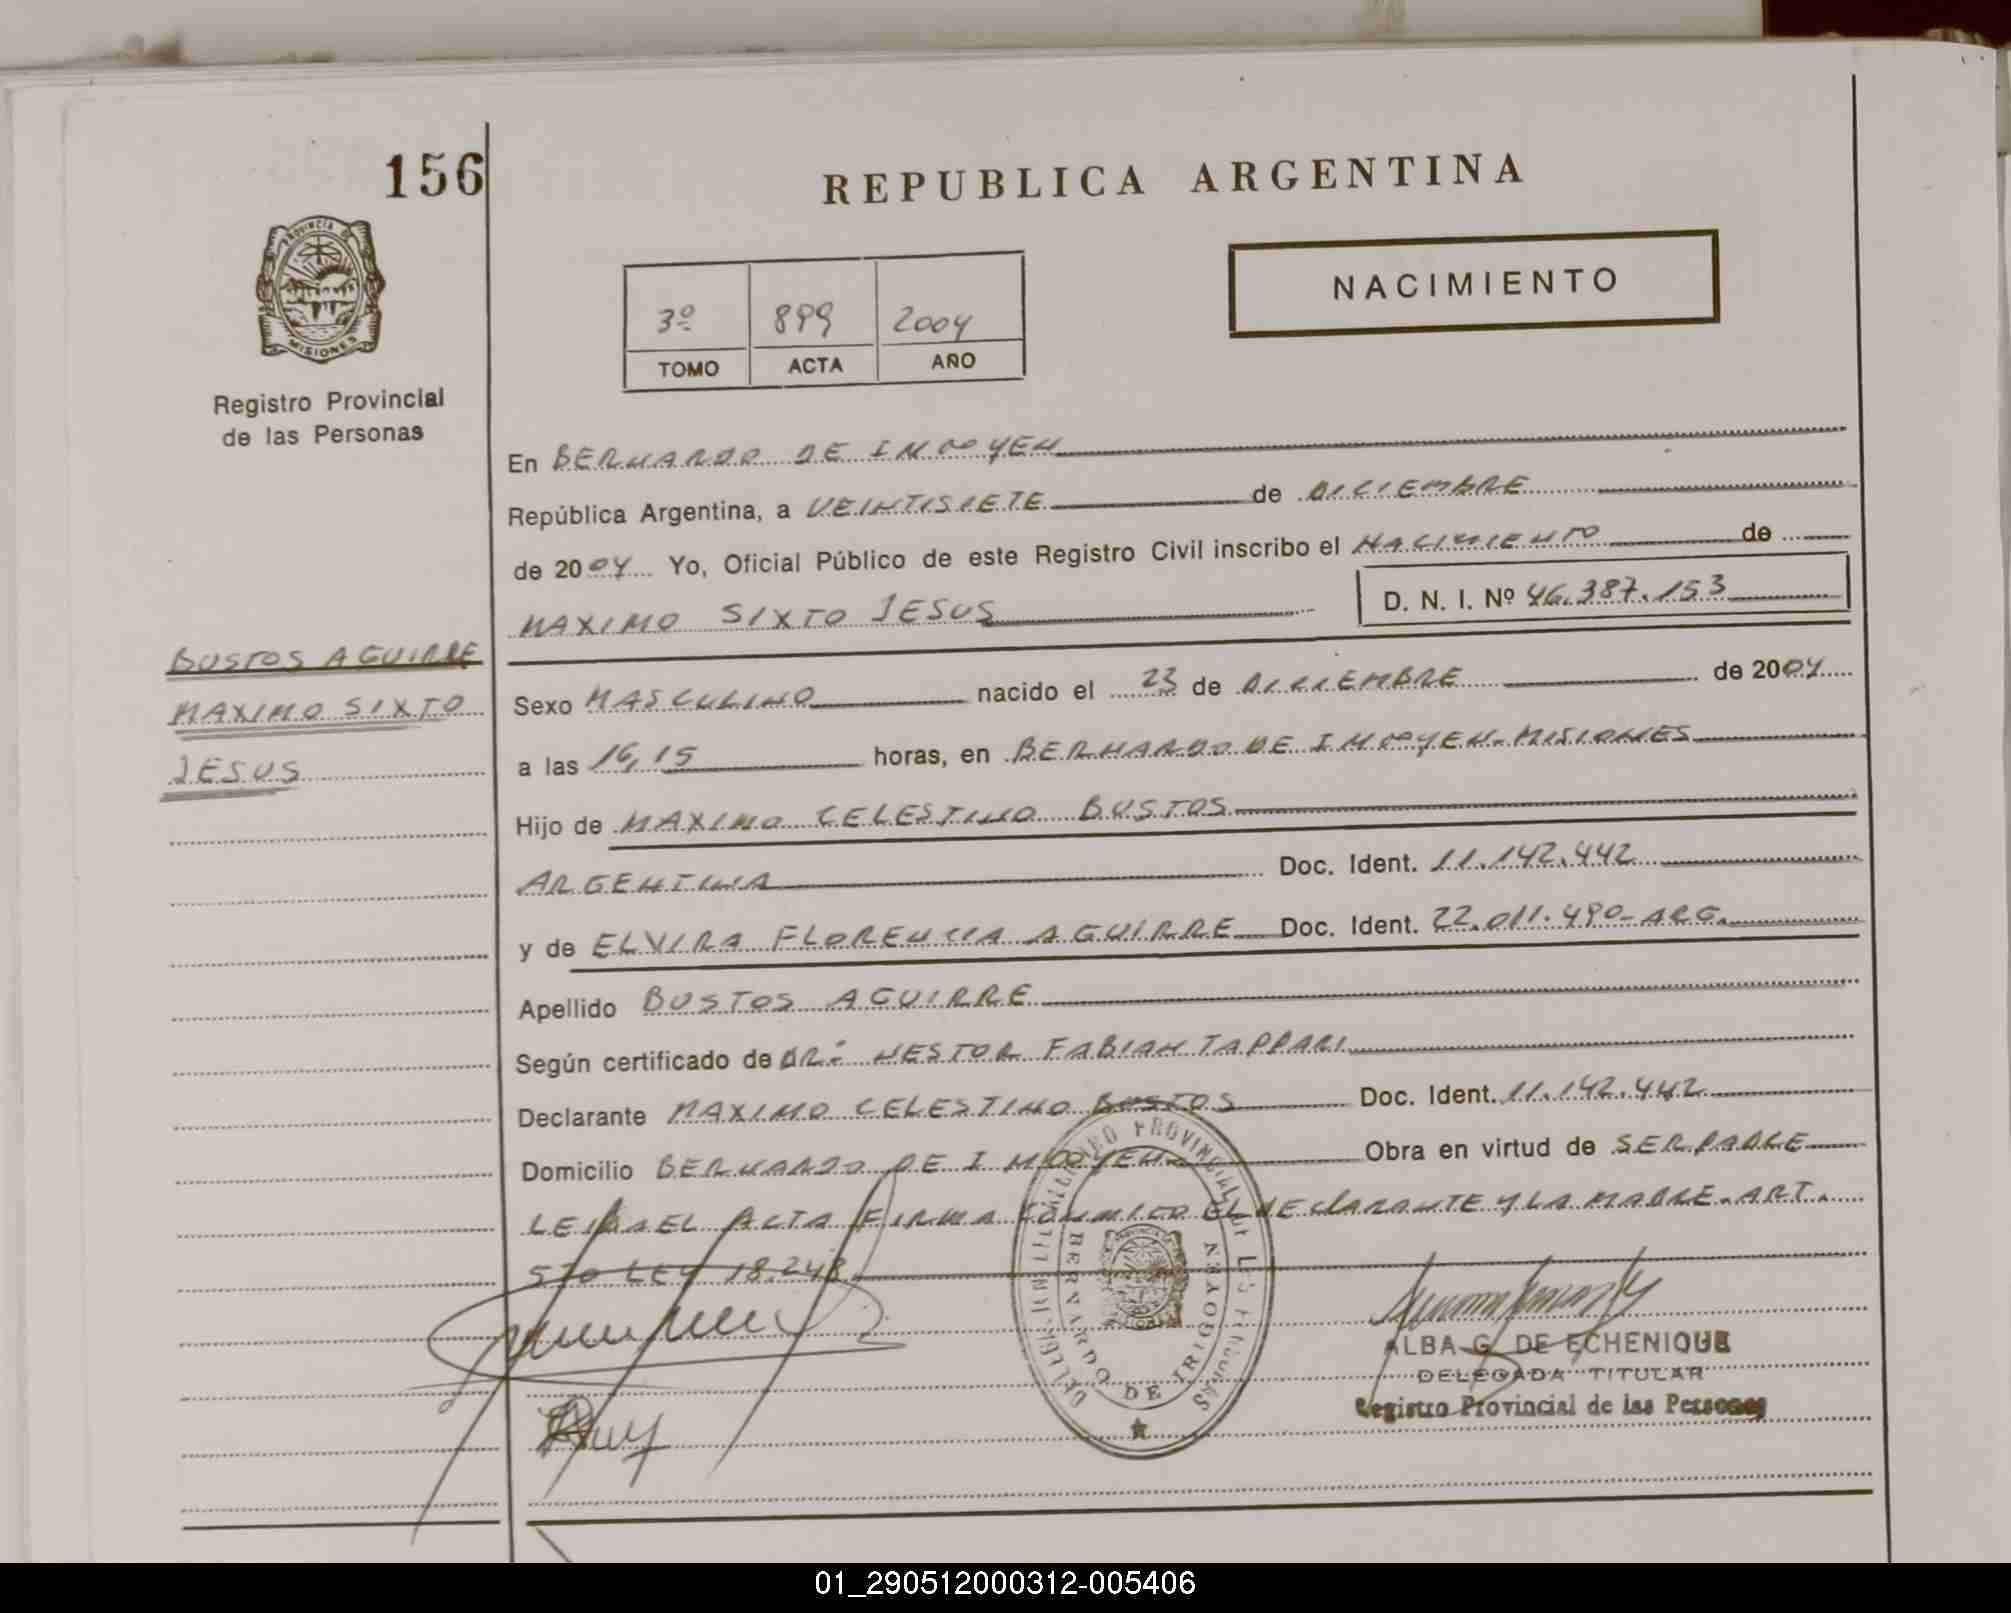 156
REPUBLICA ARGENTINA
PROVINCIA DE
MISIONES
Registro Provincial
de las Personas
NACIMIENTO
3º 899 2004
TOMO ACTA AÑO
En BERNARDO DE IRIGOYEN
República Argentina, a VEINTISIETE de DICIEMBRE
de 2004 Yo, Oficial Público de este Registro Civil inscribo el NACIMIENTO de
MAXIMO SIXTO JESUS D. N. I. Nº 46.387.153
BUSTOS AGUIRRE
MAXIMO SIXTO
JESUS
Sexo MASCULINO nacido el 23 de DICIEMBRE de 2004
a las 16,15 horas, en BERNARDO DE IRIGOYEN-MISIONES
Hijo de MAXIMO CELESTINO BUSTOS
ARGENTINA Doc. Ident. 11.142.442
y de ELVIRA FLORENCIA AGUIRRE Doc. Ident. 22.011.490-ARG.
Apellido BUSTOS AGUIRRE
Según certificado de DR: NESTOR FABIAN TAPPARI
Declarante MAXIMO CELESTINO BUSTOS Doc. Ident. 11.142.442
Domicilio BERNARDO DE IRIGOYEN Obra en virtud de SER PADRE
LEIDA EL ACTA FIRMA CONMIGO EL DECLARANTE Y LA MADRE. ART.
5TO LEY 18.248
PROVINCIAL DE LAS PERSONAS
BERNARDO DE IRIGOYEN
ALBA G. DE ECHENIQUE
DELEGADA TITULAR
Registro Provincial de las Personas
01_290512000312-005406